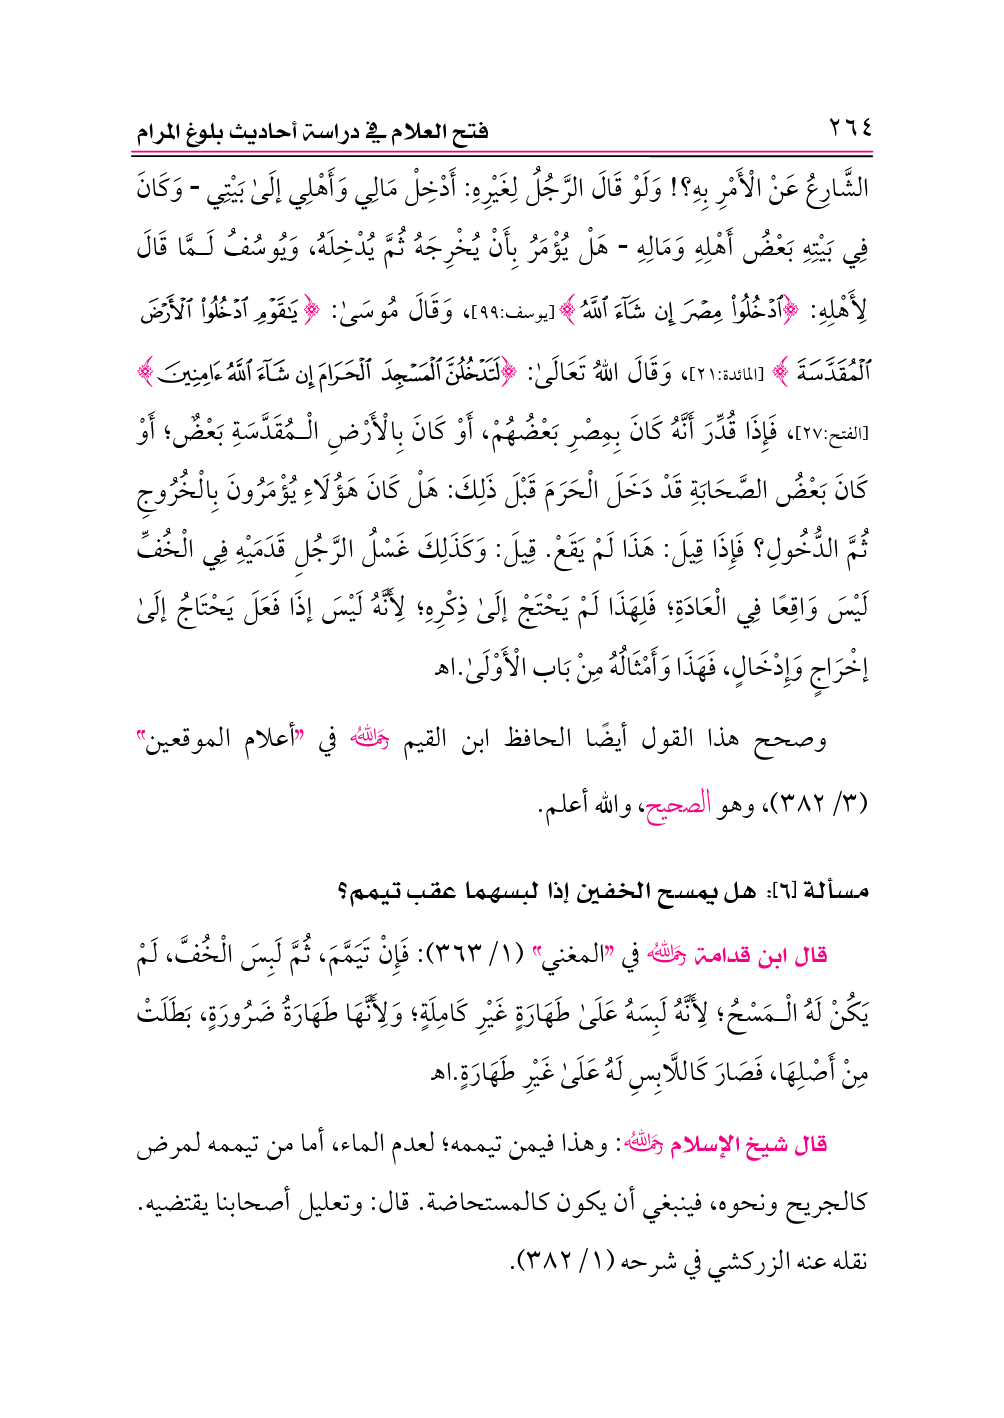 ٢٦٤ فتح العلام في دراسة أحاديث بلوغ المرام
الشَّارِعُ عَنْ الْأَمْرِ بِهِ؟! وَلَوْ قَالَ الرَّجُلُ لِغَيْرِهِ: أَدْخِلْ مَالِي وَأَهْلِي إلَىٰ بَيْتِي - وَكَانَ
فِي بَيْتِهِ بَعْضُ أَهْلِهِ وَمَالِهِ - هَلْ يُؤْمَرُ بِأَنْ يُخْرِجَهُ ثُمَّ يُدْخِلَهُ، وَيُوسُفُ لَـمَّا قَالَ
لِأَهْلِهِ: ﴿ٱدۡخُلُواْ مِصۡرَ إِن شَآءَ ٱللَّهُ﴾ [يوسف:٩٩]، وَقَالَ مُوسَىٰ: ﴿يَٰقَوۡمِ ٱدۡخُلُواْ ٱلۡأَرۡضَ
ٱلۡمُقَدَّسَةَ﴾ [المائدة:٢١]، وَقَالَ اللهُ تَعَالَىٰ: ﴿لَتَدۡخُلُنَّ ٱلۡمَسۡجِدَ ٱلۡحَرَامَ إِن شَآءَ ٱللَّهُ ءَامِنِينَ﴾
[الفتح:٢٧]، فَإِذَا قُدِّرَ أَنَّهُ كَانَ بِمِصْرِ بَعْضُهُمْ، أَوْ كَانَ بِالْأَرْضِ الْـمُقَدَّسَةِ بَعْضٌ؛ أَوْ
كَانَ بَعْضُ الصَّحَابَةِ قَدْ دَخَلَ الْحَرَمَ قَبْلَ ذَلِكَ: هَلْ كَانَ هَؤُلَاءِ يُؤْمَرُونَ بِالْخُرُوجِ
ثُمَّ الدُّخُولِ؟ فَإِذَا قِيلَ: هَذَا لَمْ يَقَعْ. قِيلَ: وَكَذَلِكَ غَسْلُ الرَّجُلِ قَدَمَيْهِ فِي الْخُفِّ
لَيْسَ وَاقِعًا فِي الْعَادَةِ؛ فَلِهَذَا لَمْ يَحْتَجْ إلَىٰ ذِكْرِهِ؛ لِأَنَّهُ لَيْسَ إذَا فَعَلَ يَحْتَاجُ إلَىٰ
إخْرَاجٍ وَإِدْخَالٍ، فَهَذَا وَأَمْثَالُهُ مِنْ بَاب الْأَوْلَىٰ.اﻫ
وصحح هذا القول أيضًا الحافظ ابن القيم رحمه الله في "أعلام الموقعين"
(٣/ ٣٨٢)، وهو الصحيح، والله أعلم.
مسألة [٦]: هل يمسح الخفين إذا لبسهما عقب تيمم؟
قال ابن قدامة رحمه الله في "المغني" (١/ ٣٦٣): فَإِنْ تَيَمَّمَ، ثُمَّ لَبِسَ الْخُفَّ، لَمْ
يَكُنْ لَهُ الْـمَسْحُ؛ لِأَنَّهُ لَبِسَهُ عَلَىٰ طَهَارَةٍ غَيْرِ كَامِلَةٍ؛ وَلِأَنَّهَا طَهَارَةُ ضَرُورَةٍ، بَطَلَتْ
مِنْ أَصْلِهَا، فَصَارَ كَاللَّابِسِ لَهُ عَلَىٰ غَيْرِ طَهَارَةٍ.اﻫ
قال شيخ الإسلام رحمه الله: وهذا فيمن تيممه؛ لعدم الماء، أما من تيممه لمرض
كالجريح ونحوه، فينبغي أن يكون كالمستحاضة. قال: وتعليل أصحابنا يقتضيه.
نقله عنه الزركشي في شرحه (١/ ٣٨٢).